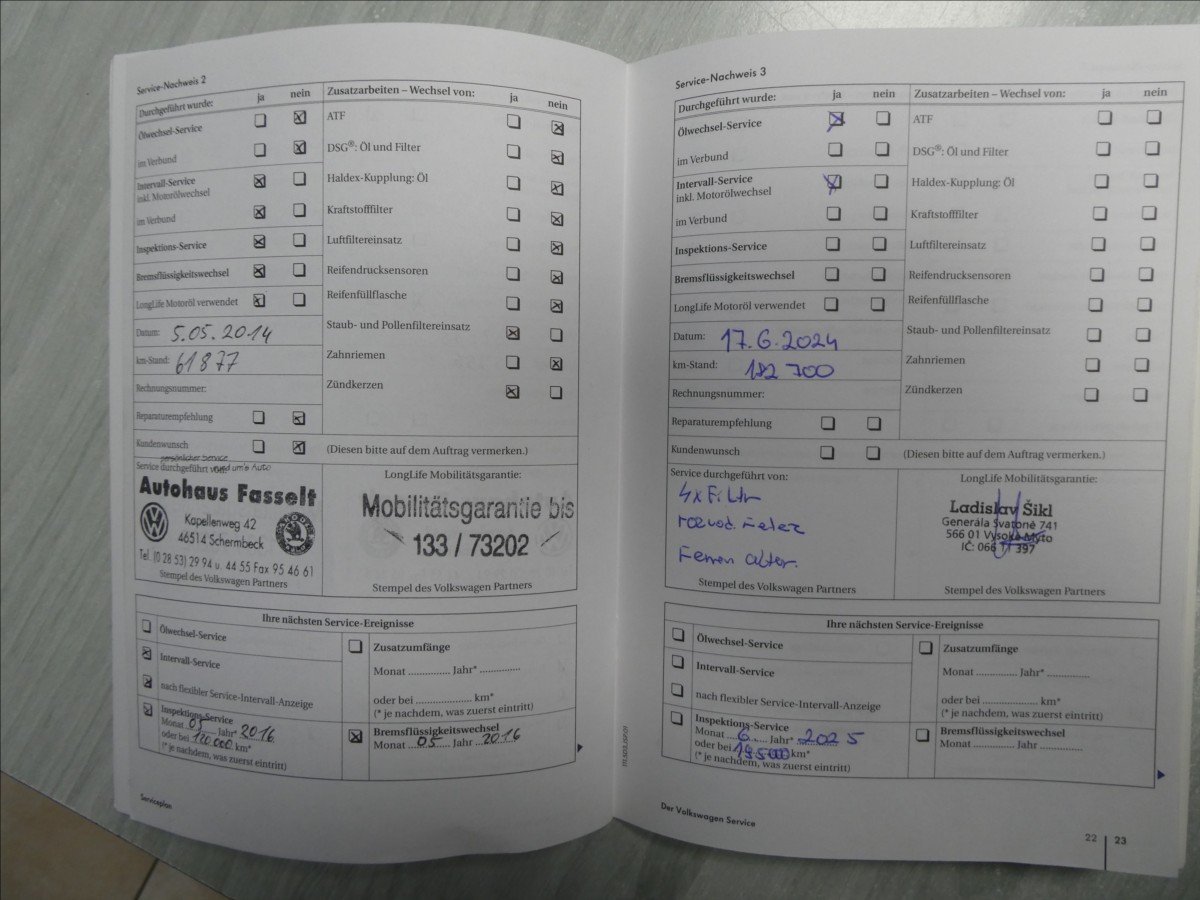 Service-Nachweis 2
Durchgeführt wurde: ja nein
Ölwechsel-Service
im Verbund
Intervall-Service
inkl. Motorölwechsel
im Verbund
Inspektions-Service
Bremsflüssigkeitswechsel
LongLife Motoröl verwendet
Datum: 5.05.2014
km-Stand: 61877
Rechnungsnummer:
Reparaturempfehlung
Kundenwunsch
persönlicher Service
Service durchgeführt von: rund um's Auto
Autohaus Fasselt
Kapellenweg 42
46514 Schermbeck
Tel. (0 28 53) 29 94 u. 44 55 Fax 95 46 61
Stempel des Volkswagen Partners
Zusatzarbeiten – Wechsel von: ja nein
ATF
DSG®: Öl und Filter
Haldex-Kupplung: Öl
Kraftstofffilter
Luftfiltereinsatz
Reifendrucksensoren
Reifenfüllflasche
Staub- und Pollenfiltereinsatz
Zahnriemen
Zündkerzen
(Diesen bitte auf dem Auftrag vermerken.)
LongLife Mobilitätsgarantie:
Mobilitätsgarantie bis
133 / 73202
Stempel des Volkswagen Partners
Ihre nächsten Service-Ereignisse
Ölwechsel-Service
Intervall-Service
nach flexibler Service-Intervall-Anzeige
Inspektions-Service
Monat 05 Jahr* 2016
oder bei 120.000 km*
(* je nachdem, was zuerst eintritt)
Zusatzumfänge
Monat ............... Jahr* ...............
oder bei .................... km*
(* je nachdem, was zuerst eintritt)
Bremsflüssigkeitswechsel
Monat 05 Jahr 2016
Serviceplan
Service-Nachweis 3
Durchgeführt wurde: ja nein
Ölwechsel-Service
im Verbund
Intervall-Service
inkl. Motorölwechsel
im Verbund
Inspektions-Service
Bremsflüssigkeitswechsel
LongLife Motoröl verwendet
Datum: 17.6.2024
km-Stand: 182 700
Rechnungsnummer:
Reparaturempfehlung
Kundenwunsch
Service durchgeführt von:
4x Filtr
Stempel des Volkswagen Partners
Zusatzarbeiten – Wechsel von: ja nein
ATF
DSG®: Öl und Filter
Haldex-Kupplung: Öl
Kraftstofffilter
Luftfiltereinsatz
Reifendrucksensoren
Reifenfüllflasche
Staub- und Pollenfiltereinsatz
Zahnriemen
Zündkerzen
(Diesen bitte auf dem Auftrag vermerken.)
LongLife Mobilitätsgarantie:
Ladislav Šikl
Generála Svatoně 741
566 01 Vysoké Mýto
IČ: 066 11 397
Stempel des Volkswagen Partners
Ihre nächsten Service-Ereignisse
Ölwechsel-Service
Intervall-Service
nach flexibler Service-Intervall-Anzeige
Inspektions-Service
Monat 6 Jahr* 2025
oder bei 195000 km*
(* je nachdem, was zuerst eintritt)
Zusatzumfänge
Monat ............... Jahr* ...............
oder bei .................... km*
(* je nachdem, was zuerst eintritt)
Bremsflüssigkeitswechsel
Monat .............. Jahr ..............
Der Volkswagen Service
22 23